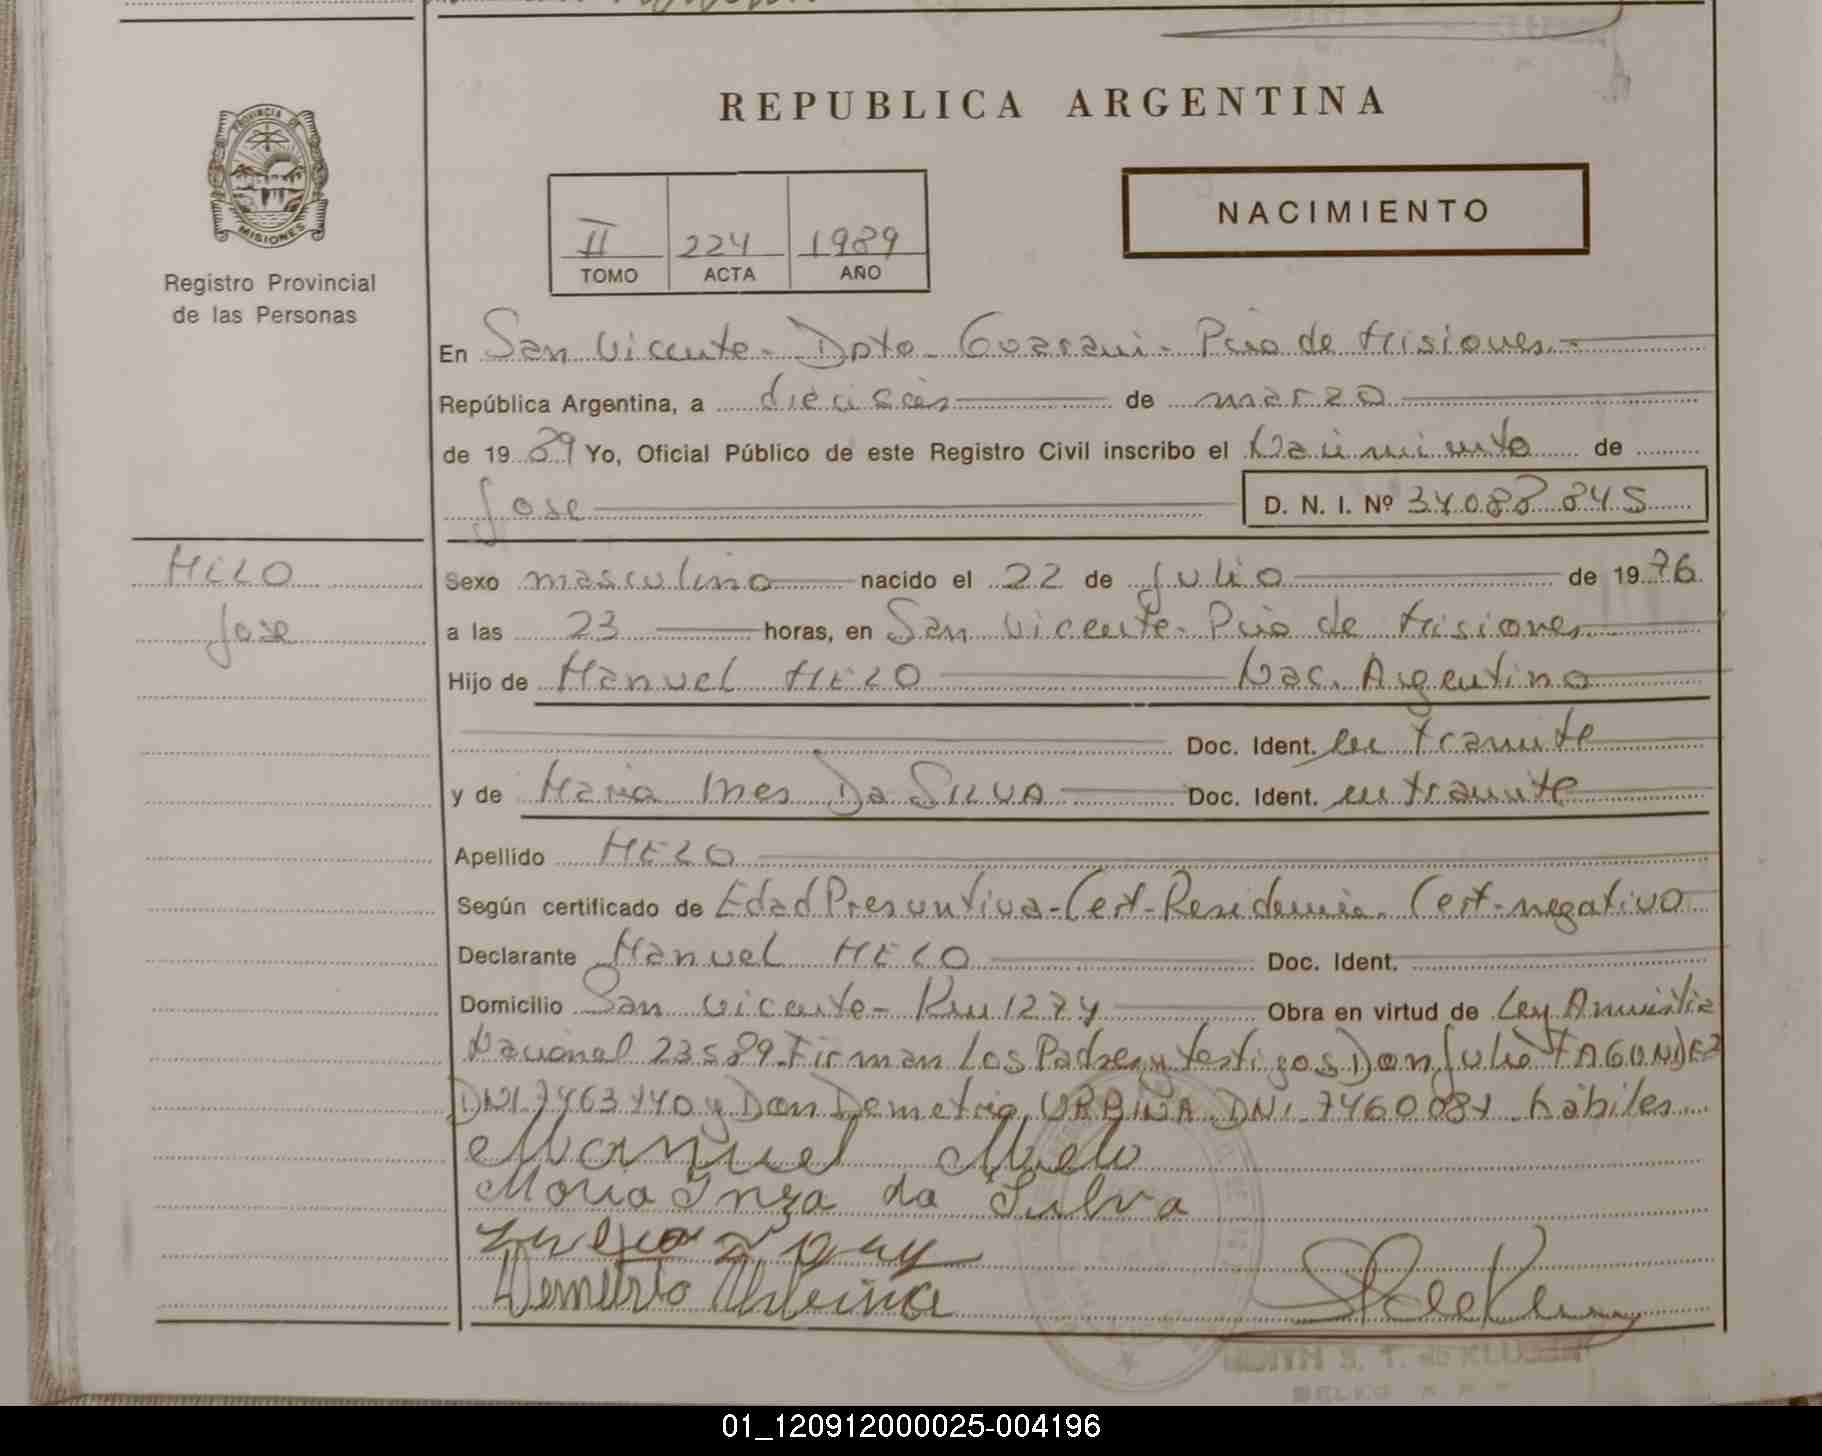 REPUBLICA ARGENTINA
PROVINCIA DE
MISIONES
Registro Provincial
de las Personas
NACIMIENTO
II 224 1989
TOMO ACTA AÑO
En San Vicente - Dpto - Guarani - Pcia de Misiones.-
República Argentina, a dieciséis de marzo
de 1989 Yo, Oficial Público de este Registro Civil inscribo el Nacimiento de
Jose D. N. I. Nº 34.088.845
MELO
Jose
Sexo masculino nacido el 22 de Julio de 1976
a las 23 horas, en San Vicente - Pcia de Misiones
Hijo de Manuel MELO Nac. Argentino
Doc. Ident. en tramite
y de Maria Ines Da SILVA Doc. Ident. en tramite
Apellido MELO
Según certificado de Edad Presuntiva - Cert - Residencia. Cert - negativo
Declarante Manuel MELO Doc. Ident.
Domicilio San Vicente - Km 1274 Obra en virtud de Ley Amnistia
Nacional 23589. Firman Los Padres y testigos Don Julio FAGUNDEZ
DNI 7463440 y Don Demetrio URBINA DNI 7460087 habiles
Manuel Melo
Maria Inza da Silva
Demetrio Urbina
S. T. de KLUSEN
01_120912000025-004196